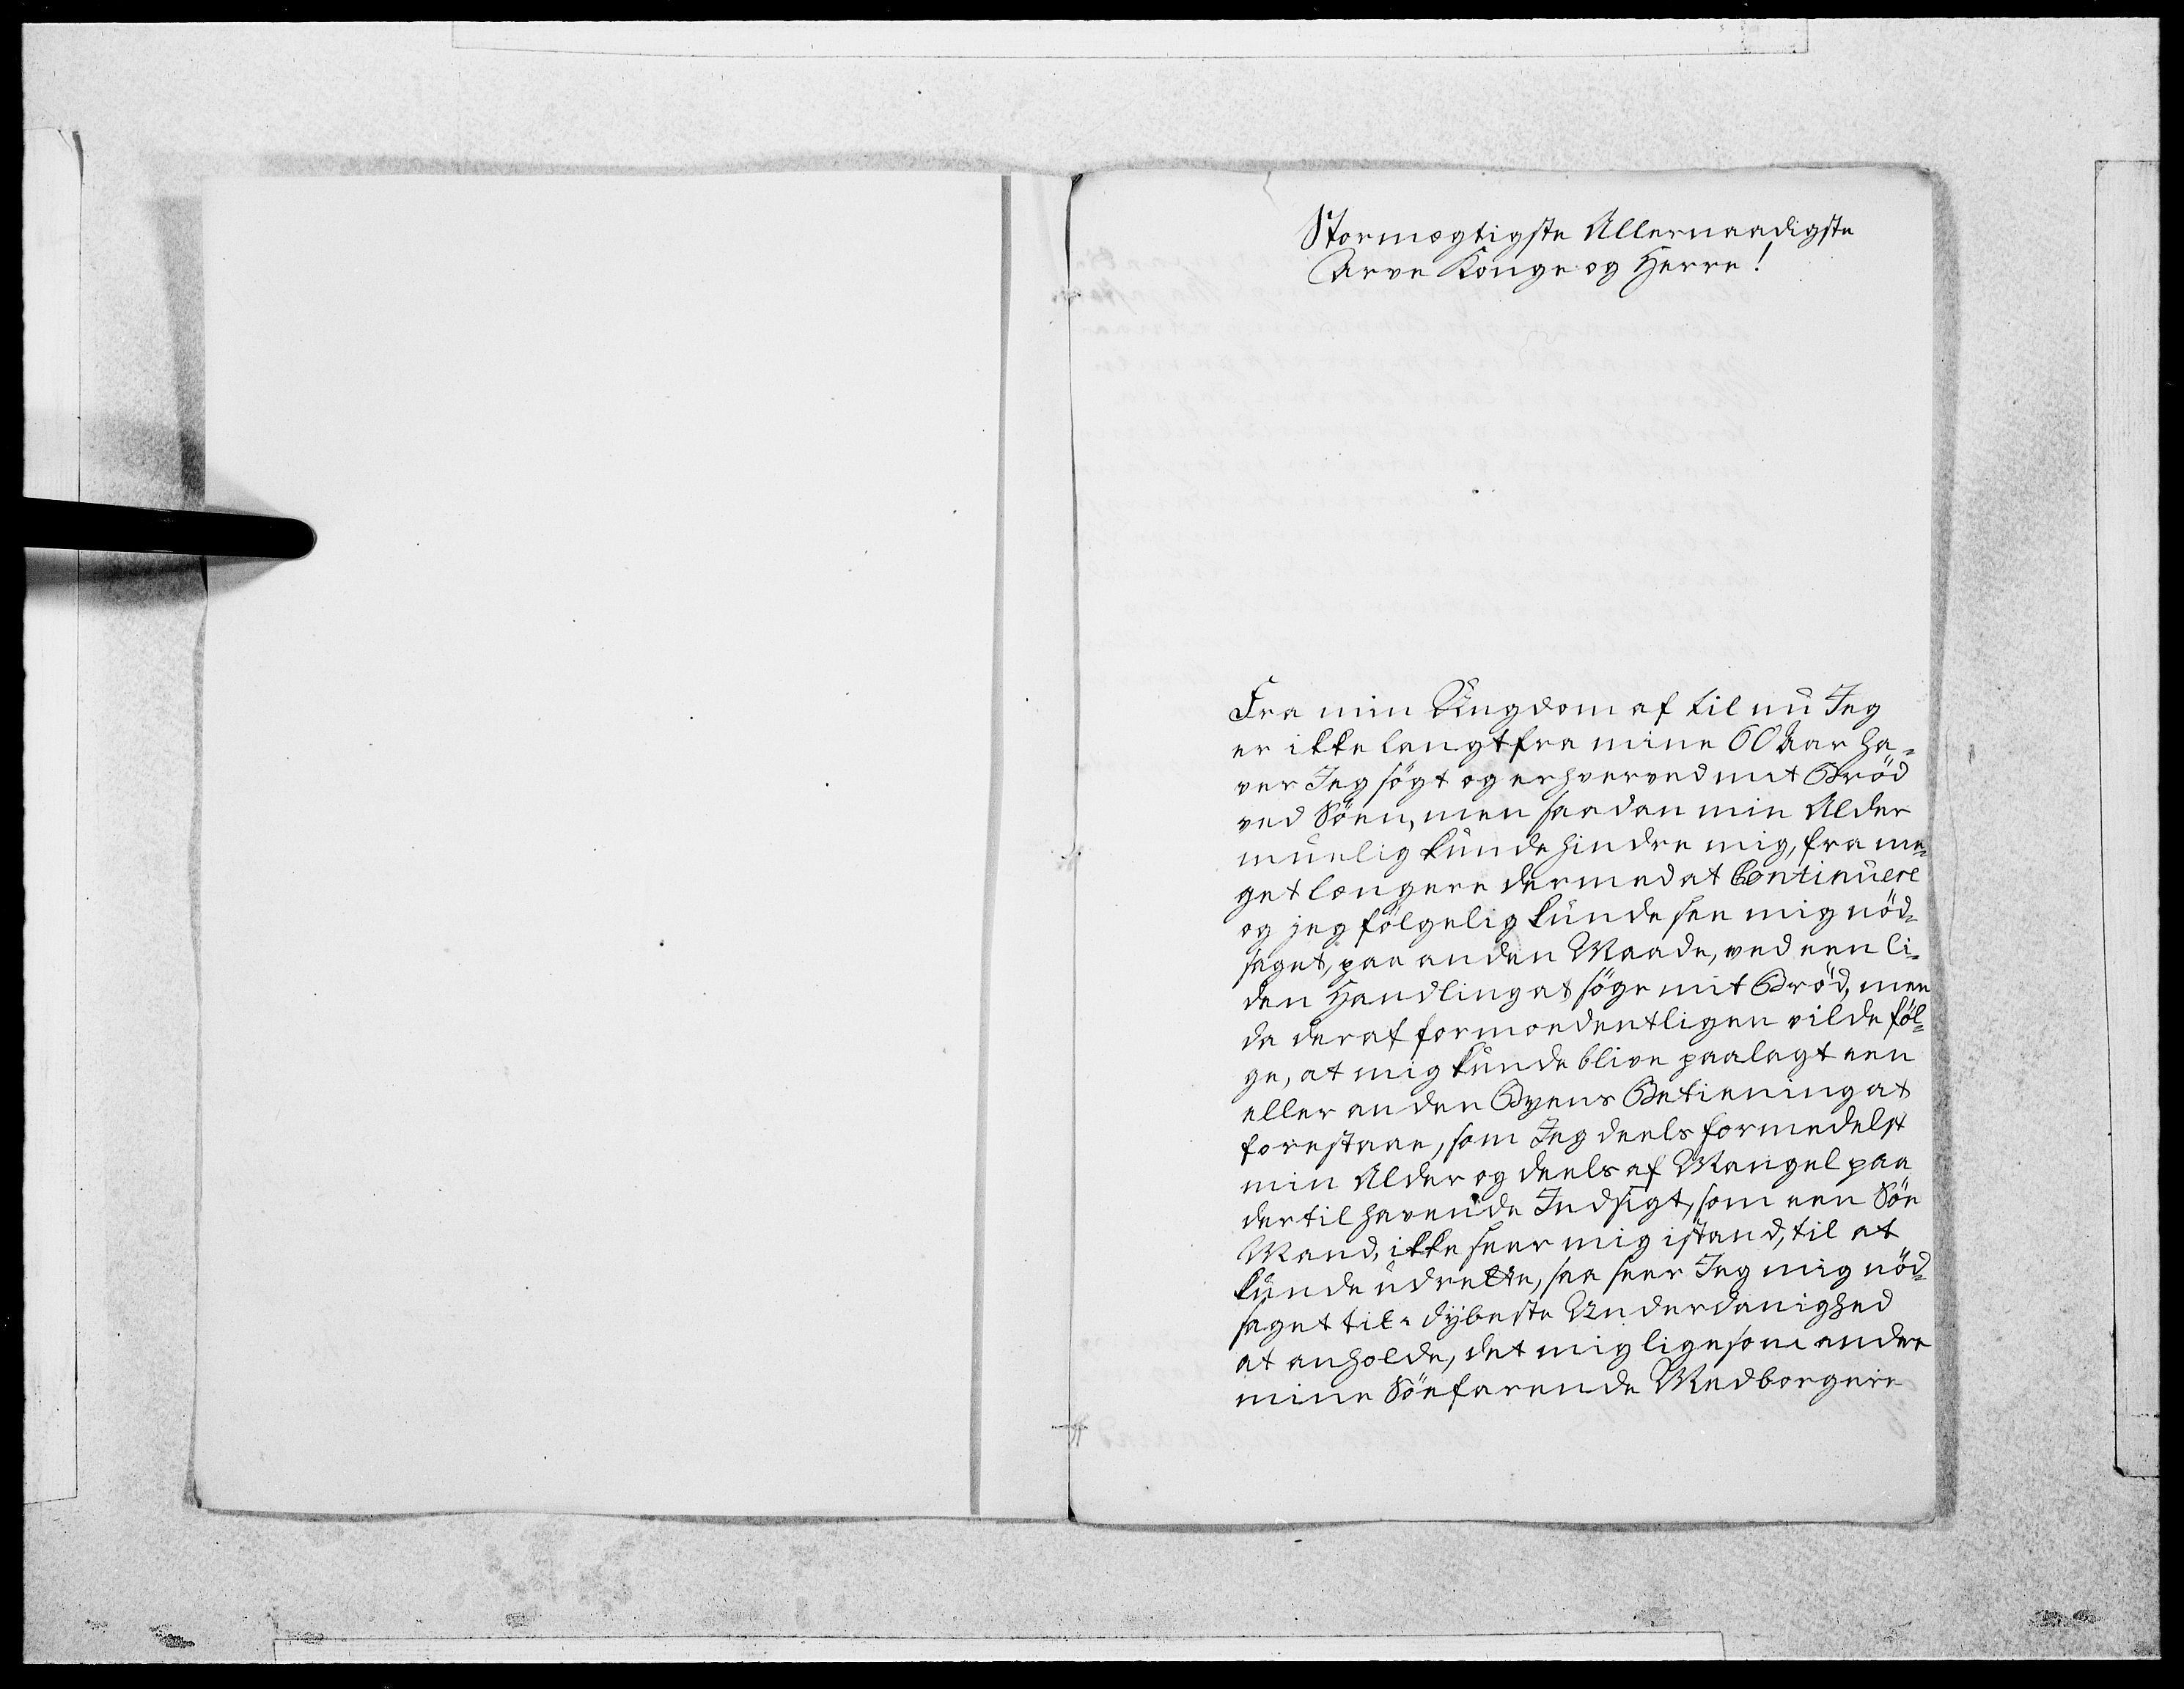 Stormægtigste Allernaadigste
Arve Konge og Herre!
Fra min Ungdom af til nu Jeg
er ikke langt fra mine 60 Aar ha¬
ver Jeg søgt og erhverved mit Brød
ved Søen, men saadan min Alder
muelig kunde hindre mig, fra me¬
get længere dermed at Continuere
og jeg følgelig kunde see mig nød¬
saget, paa anden Maade, ved een li¬
den Handling at søge mit Brød, men
da deraf formodentligen vilde føl¬
ge, at mig kunde blive paalagt een
eller anden Byens Betiening at
forestaae, som Jeg deels formedelst
min Alder og deels af Mangel paa
dertil havende Indsigt, som een Søe
Mand, ikke seer mig istand, til at
kunde udrette, saa seer Jeg mig nød¬
saget til dybeste Underdanighed
at anholde, det mig ligesom andre
mine Søefarende Medborgere